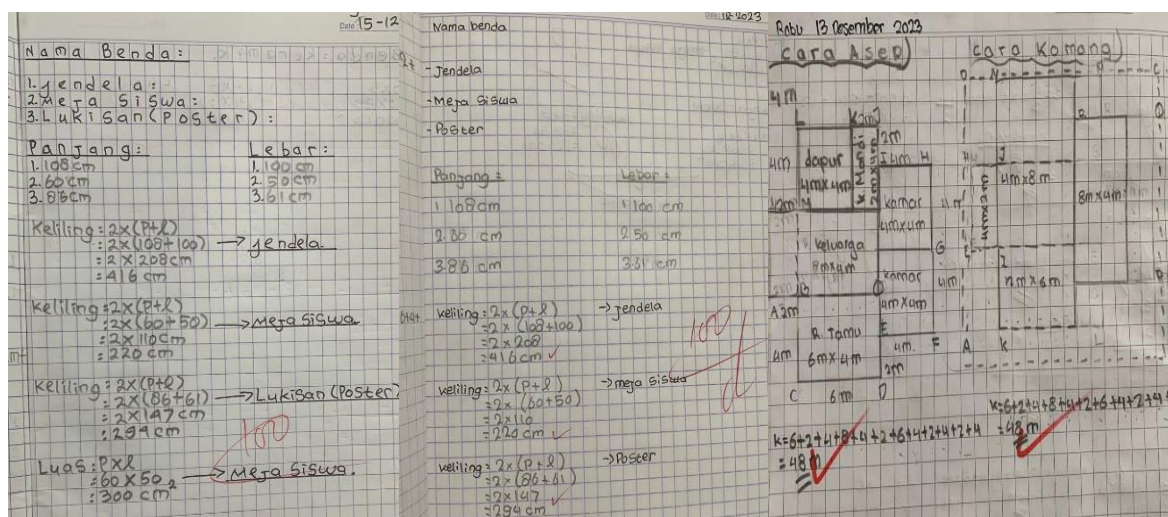 Date 15-12
Nama Benda:
1. Jendela:
2. Meja Siswa:
3. Lukisan (Poster):
Panjang:
Lebar:
1. 108 cm
1. 100 cm
2. 60 cm
2. 50 cm
3. 86 cm
3. 61 cm
Keliling: 2x(P+l)
: 2x(108+100) → Jendela
: 2 x 208 cm
: 416 cm
Keliling: 2x(P+l)
: 2x(60+50) → Meja Siswa
: 2x110 cm
: 220 cm
Keliling: 2x(P+l)
: 2x(86+61) → Lukisan (Poster)
: 2x147 cm
: 294 cm
100
Luas: Pxl
: 60 x 50 → Meja Siswa.
: 300 cm²
12-2023
Nama benda
- Jendela
- Meja Siswa
- Poster
Panjang:
Lebar:
1 108 cm
1 100 cm
2. 60 cm
2 50 cm
3.86 cm
3.61 cm
keliling: 2x (P+l) → Jendela
=2x (108+100)
=2x 208
=416 cm
100
keliling: 2x (P+l) → meja siswa
=2x (60+50)
=2x110
=220 cm
keliling: 2x (P+l) → Poster
=2x (86+61)
=2x147
=294 cm
Rabu 13 Desember 2023
Cara Asep
4m
L
K 2m J
2m
4m
dapur
4mx4m
K. Mandi
I 4m H
2m M
kamar
4mx4m
4m
keluarga
8mx4m
G
kamar
4mx4m
4m
B
A 2m
R. Tamu
6mx4m
4m
E
4m. F
2m
C 6m D
K=6+2+4+8+4+2+6+4+2+4+2+4
=48 m
Cara Komang
4mx8m
8mx4m
I
A K
K=6+2+4+8+4+2+6+4+2+4+
=48 m